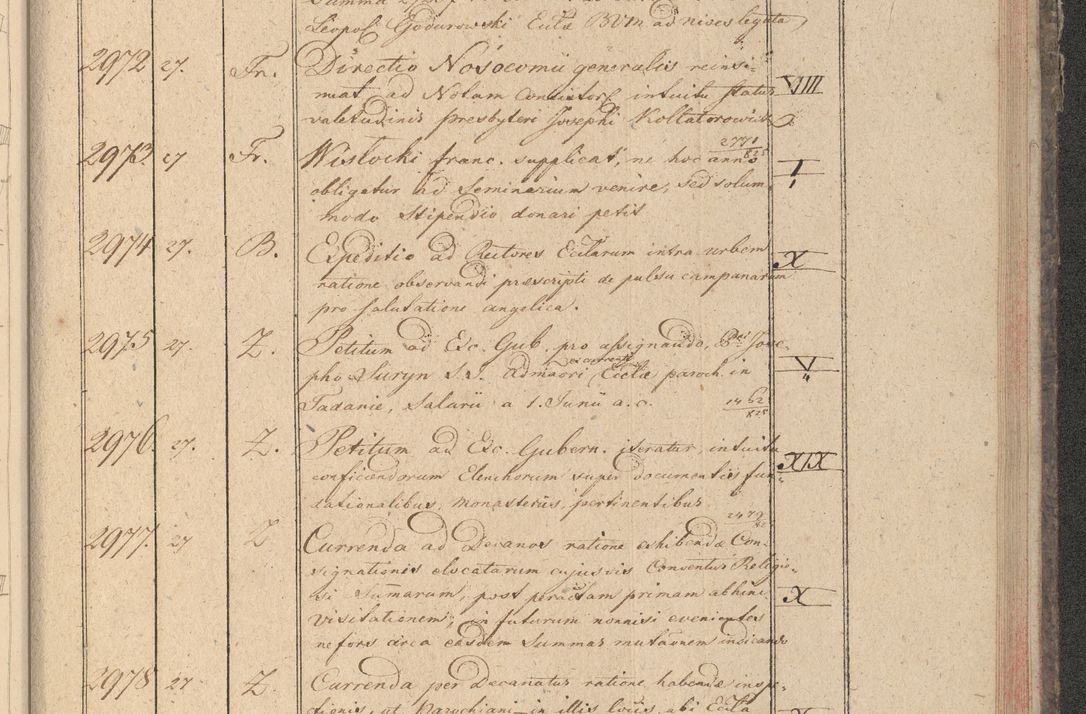 Leopol Godurowski Eccla BVM ad nives legata
2972 27. Fr. Directio Nosocomii generalis reinsi-
nuat ad Notam Consistorl intuitu status VIIII
valetudinis presbyteri Josephi Kollatorowicz
2973. 27 Fr. Wisłocki franc. supplicat, ne hoc anno 2771/825 I
obligetur ad Seminarium venire, sed solum
modo Stipendio donari petit
2974 27. B. Expeditio ad Rectores Ecclarum intra urbem X
ratione observandi præscripti de pulsu campanarum
pro salutatione angelica.
2975 27. Z. Petitum ad Exc. Gub. pro assignando, Jose-
pho Suryn S.J. admaori excurrenti Ecclæ paroch. in V
Tadanie, Salarii a 1. Junii a. c. 1462/825
2976. 27. Z. Petitum ad Exc. Gubern. iteratur, intuitu
conficiendorum Elenchorum super documentis fun- XIX
dationalibus, monasteriis, pertinentibus
2977. 27 Z Currenda ad Decanos ratione exhibendæ Con-
signationis elocatarum cujusvis Conventus Religio-
si Sumarum, post peractam primam abhinc X
visitationem; in futurum nonnisi evenientes
nefors circa easdem Summas mutaonem indicando
2978 27 Z. Currenda per Decanatus ratione habendæ inspe-
ctionis, ut Parochiani in illis locis, ubi Eccla